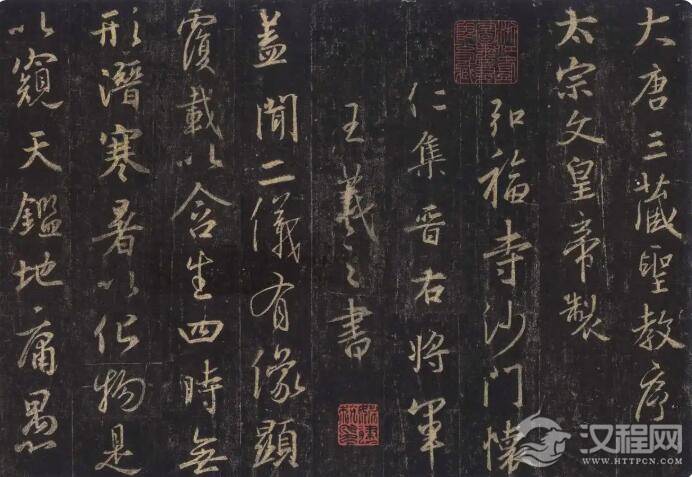 大唐三藏聖教序
太宗文皇帝製
弘福寺沙門懷
仁集晉右將軍
王羲之書
蓋聞二儀有像顯
覆載以含生四時無
形潛寒暑以化物是
以窺天鑑地庸愚
汉程网
WWW.HTTPCN.COM